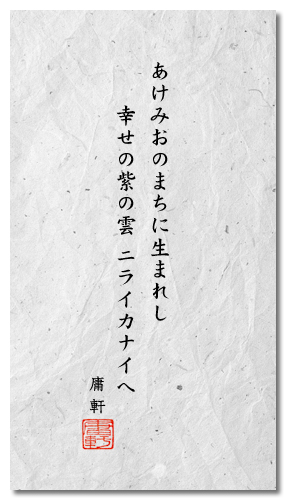 あけみおのまちに生まれし
幸せの紫の雲 ニライカナイへ
庸軒